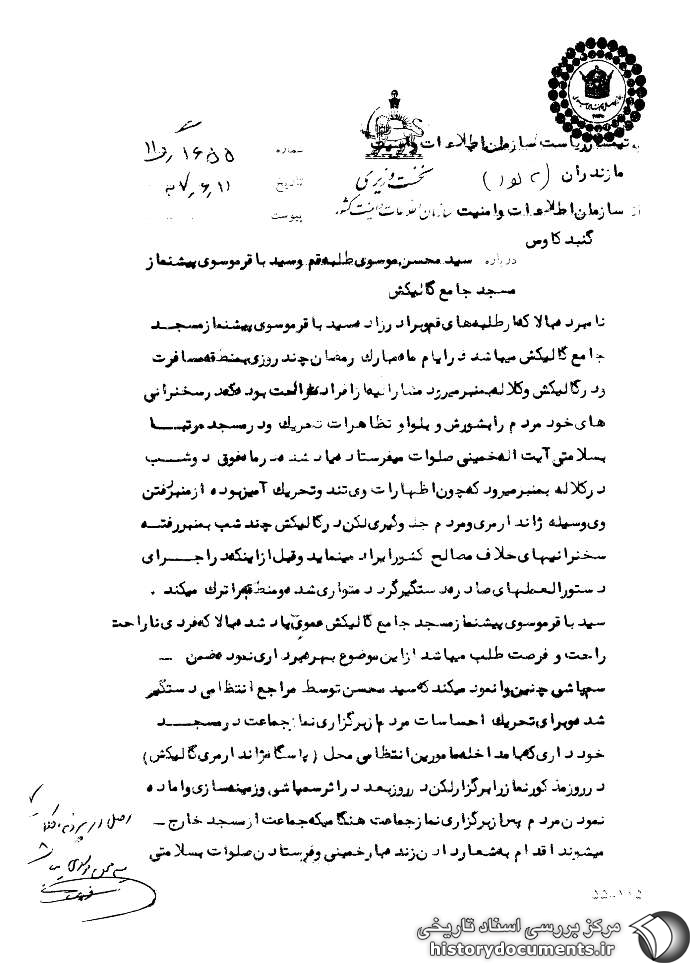 به تیمسار ریاست سازمان اطلاعات و امنیت
مازندران
شماره ۱۶۵۵ / ۱۱
نخست وزیری
تاریخ ۱۱ / ۶ /
از سازمان اطلاعات و امنیت سازمان اطلاعات و امنیت کشور
پیوست
گنبد کاوس
درباره سید محسن موسوی طلبه قم و سید باقر موسوی پیشنماز
مسجد جامع گالیکش
نامبرده بالا که از طلبه های قم و برادرزاده سید باقر موسوی پیشنماز مسجد
جامع گالیکش میباشد در ایام ماه مبارک رمضان چند روزی به منطقه مسافرت
و در گالیکش و کلاله بمنبر میرود مشارالیه از افراد ناراحت بوده که در سخنرانی
های خود مردم را بشورش و بلوا و تظاهرات تحریک و در مسجد مرتبا
بسلامتی آیت اله خمینی صلوات میفرستاده یاد شده در ماه فوق دو شب
در کلاله بمنبر میرود که چون اظهارات وی تند و تحریک آمیز بوده از منبر رفتن
وی وسیله ژاندارمری و مردم جلوگیری لکن در گالیکش چند شب بمنبر رفته
سخنرانیهای خلاف مصالح کشور ایراد مینماید و قبل از اینکه در اجرای
دستورالعملهای صادره دستگیر گردد متواری شده و منطقه را ترک میکند .
سید باقر موسوی پیشنماز مسجد جامع گالیکش عموی یاد شده بالا که فردی ناراحت
راحت و فرصت طلب میباشد از این موضوع بهره برداری نموده ضمن
سمپاشی چنین وانمود میکند که سید محسن توسط مراجع انتظامی دستگیر
شده و برای تحریک احساسات مردم از برگزاری نماز جماعت در مسجد
خودداری که با مداخله مامورین انتظامی محل ( پاسگاه ژاندارمری گالیکش )
در روز مذکور نماز را برگزار لکن در روز بعد در اثر سمپاشی و زمینه سازی و آماده
نمودن مردم پس از برگزاری نماز جماعت هنگامیکه جماعت از مسجد خارج
میشوند اقدام به شعار دادن زنده باد خمینی و فرستادن صلوات بسلامتی
اصل در پرونده
مرکز بررسی اسناد تاریخی
historydocuments.ir